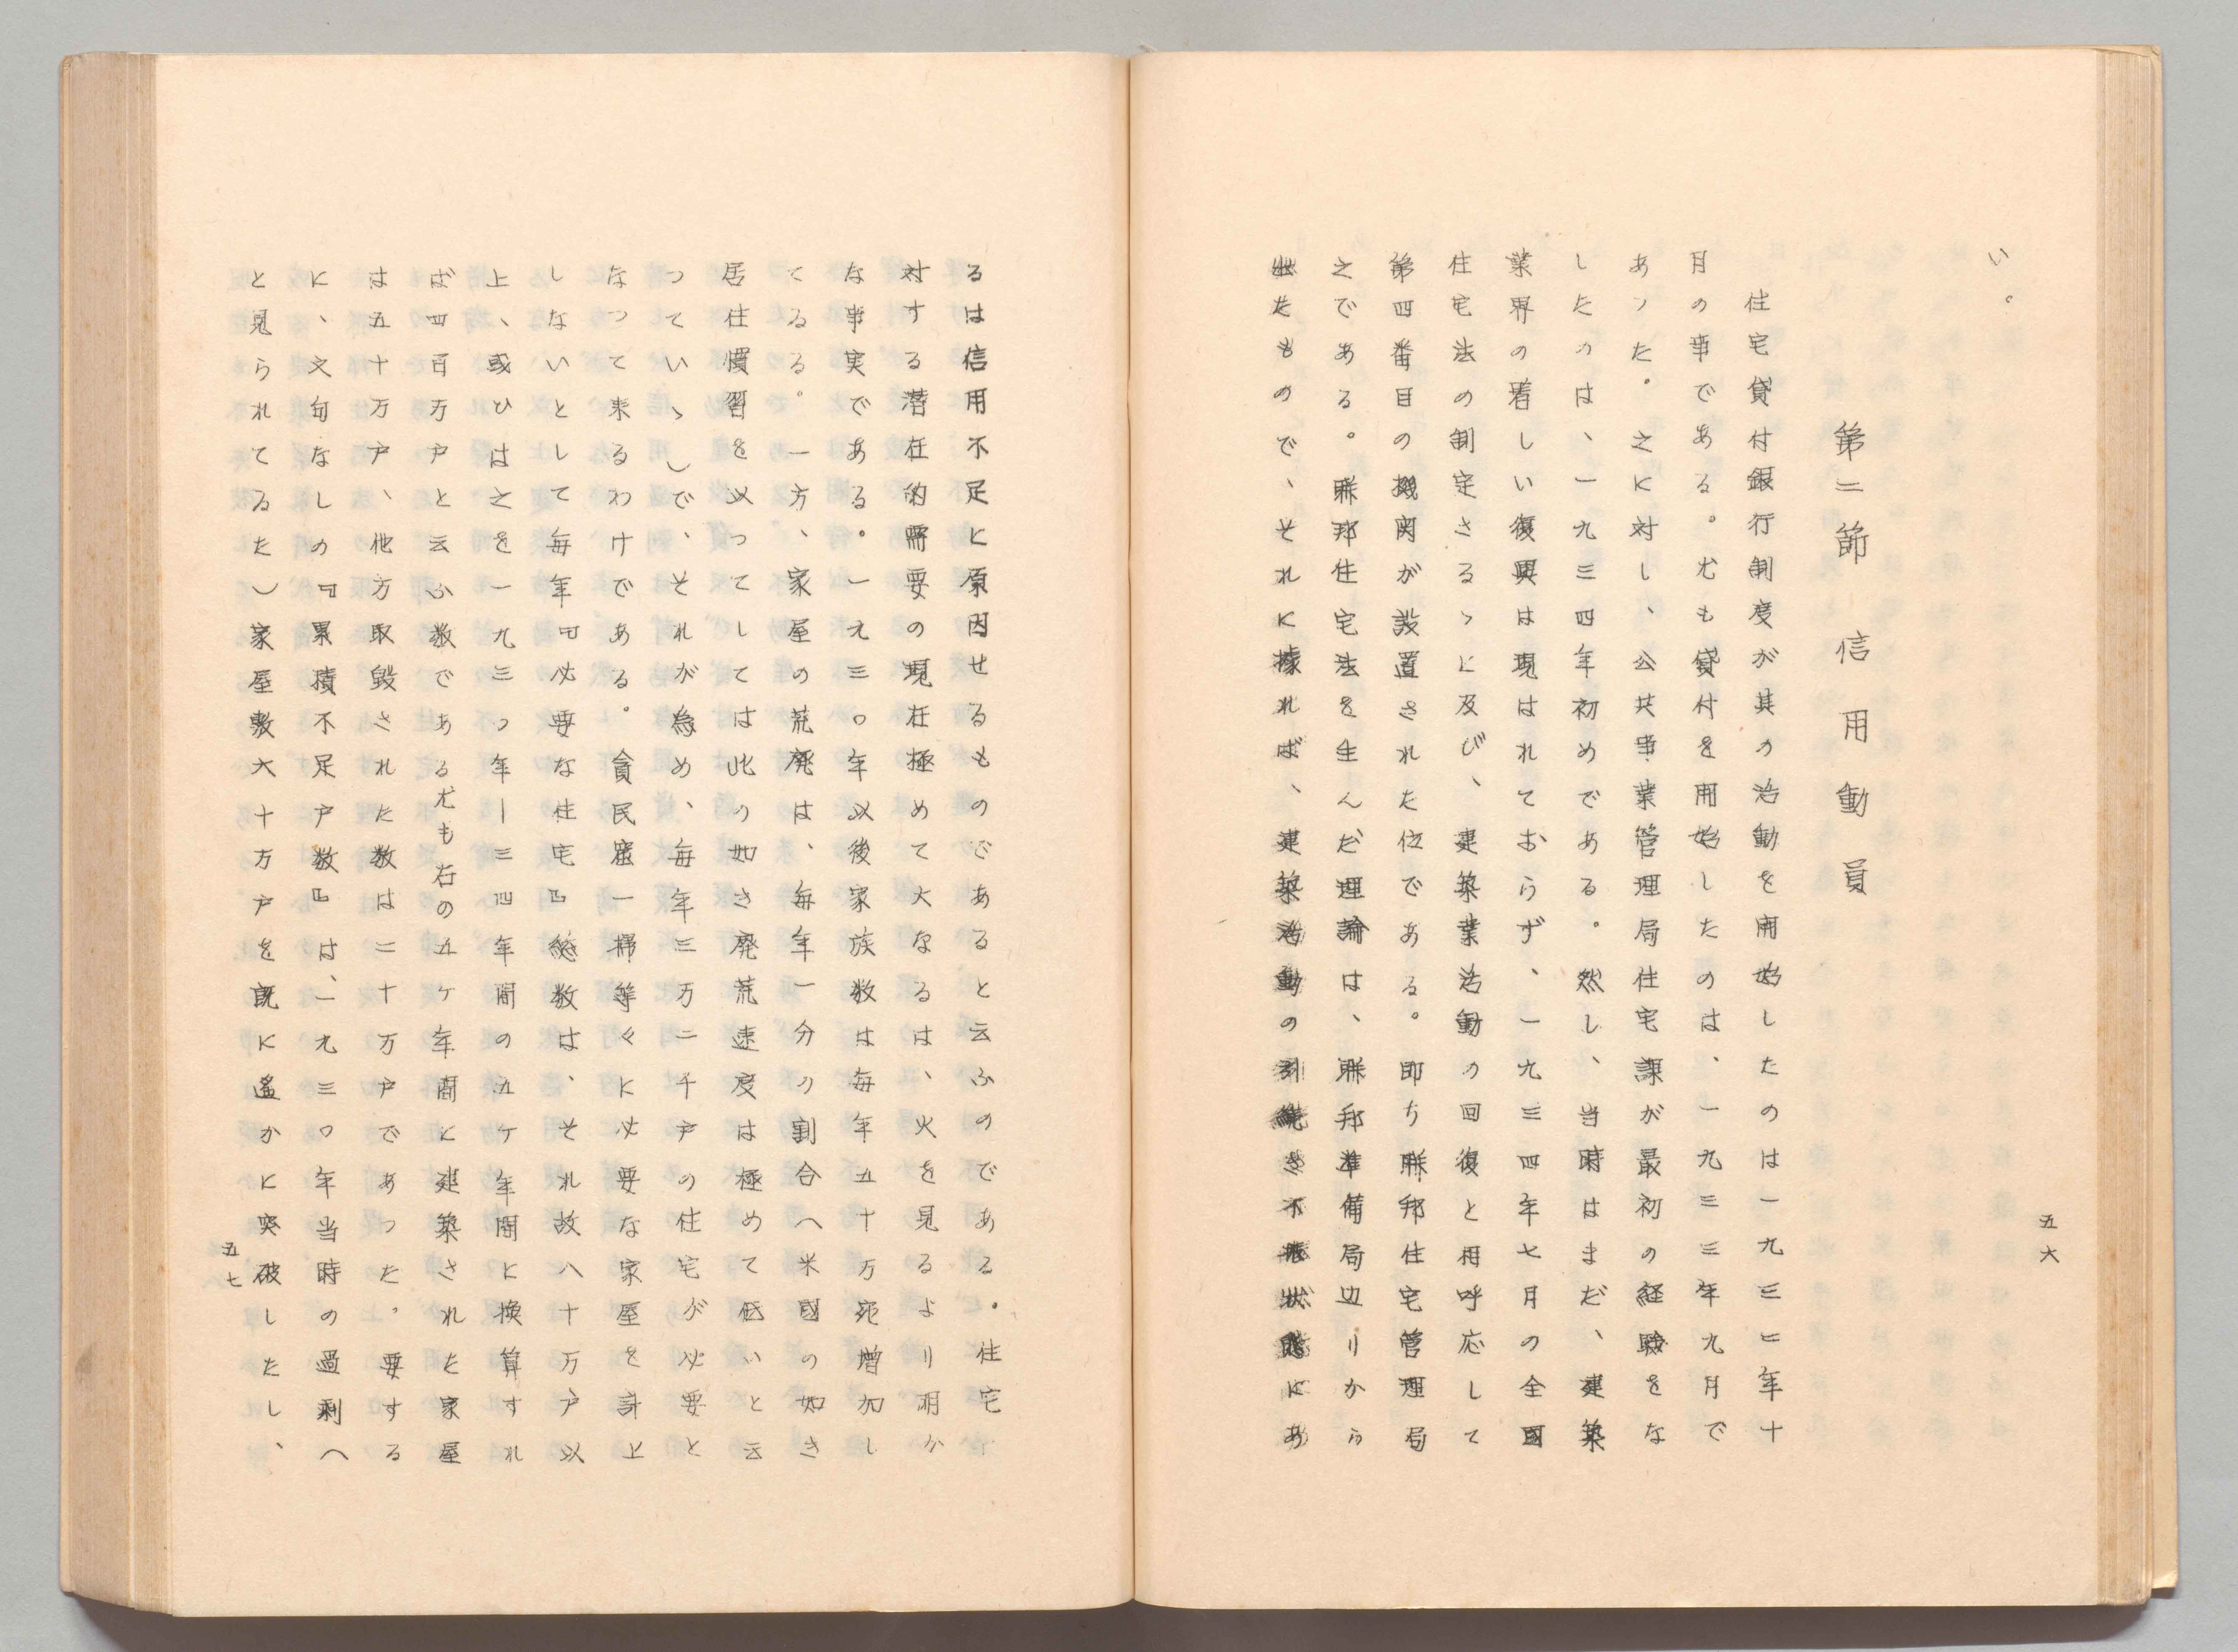 い。
第二節　信用動員
住宅貸付銀行制度が其の活動を開始したのは一九三二年十
月の事である。尤も貸付を開始したのは、一九三三年九月で
あった。之に対し、公共事業管理局住宅課が最初の経験をな
したのは、一九三四年初めである。然し、当時はまだ、建築
業界の着しい復興は現はれておらず、一九三四年七月の全國
住宅法の制定さるゝに及び、建築業活動の回復と相呼応して
第四番目の機関が設置された位である。即ち聯邦住宅管理局
之である。聯邦住宅法を生んだ理論は、聯邦準備局辺りから
出たもので、それに據れば、建築活動の引続き不振状態にあ
五六
るは信用不足に原因せるものであると云ふのである。住宅
対する潜在的需要の現在極めて大なるは、火を見るより明か
な事実である。一九三〇年以後家族数は毎年五十万宛増加し
てゐる。一方、家屋の荒廃は、毎年一分の割合へ米國の如き
居住慣習を以ってしては此の如き廃荒速度は極めて低いと云
っていゝ）で、それが為め、毎年三万二千戸の住宅が必要と
なって来るわけである。貧民窟一掃等々に必要な家屋を計上
しないとして毎年『必要な住宅』総数は、それ故八十万戸以
上、或ひは之を一九三〇年ー三四年間の五ヶ年間に換算すれ
ば四百万戸と云ふ数である尤も右の五ヶ年間に建築された家屋
は五十万戸、他方取毀された数は二十万戸であった。要する
に、文句なしの『累積不足戸数』は、一九三〇年当時の過剰（
と見られてゐた）家屋数六十万戸を既に遙かに突破したし、
五七